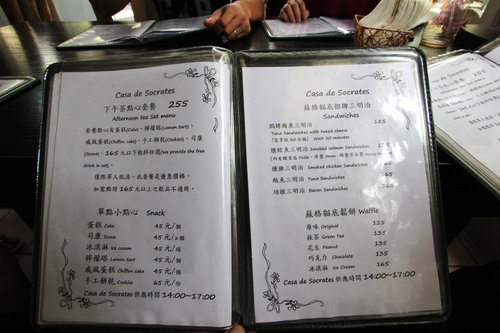 Casa de Socrates
下午茶點心套餐 255
Afternoon tea Set menu
套餐點心有蛋糕(Cake)，檸檬塔(Lemon tart)，
戚風蛋糕(Chiffon cake)，手工餅乾(Cookies)，司康
(Scone)。165元以下飲料任選(We provide the free
drink in set)。
僅限單人低消，此套餐是優惠價格，
如需點用165元以上之飲品不適用。
單點小點心 Snack
蛋糕 Cake 45 元/個
司康 Scone 45 元/2個
冰淇淋 Ice cream 45 元/球
檸檬塔 Lemon tart 45 元/個
戚風蛋糕 Chiffon cake 45 元/個
手工餅乾 Cookies 65 元/台
Casa de Socrates 供應時間 14:00~17:00
Casa de Socrates
蘇格貓底招牌三明治
Sandwiches
焗烤鮪魚三明治 185
Tuna Sandwiches with baked cheese
(需等候30分鐘) Wait 30 minutes
燻鮭魚三明治 Smoked salmon Sandwiches
燻雞三明治 Smoked chicken Sandwiches
鮪魚三明治 Tuna Sandwiches 165
培根三明治 Bacon Sandwiches 165
蘇格貓底鬆餅 Waffle
原味 Original 125
抹茶 Green Tea 135
花生 Peanut 135
巧克力 Chocolate 135
冰淇淋 Ice Cream 165
Casa de Socrates 供應時間 14:00~17:00